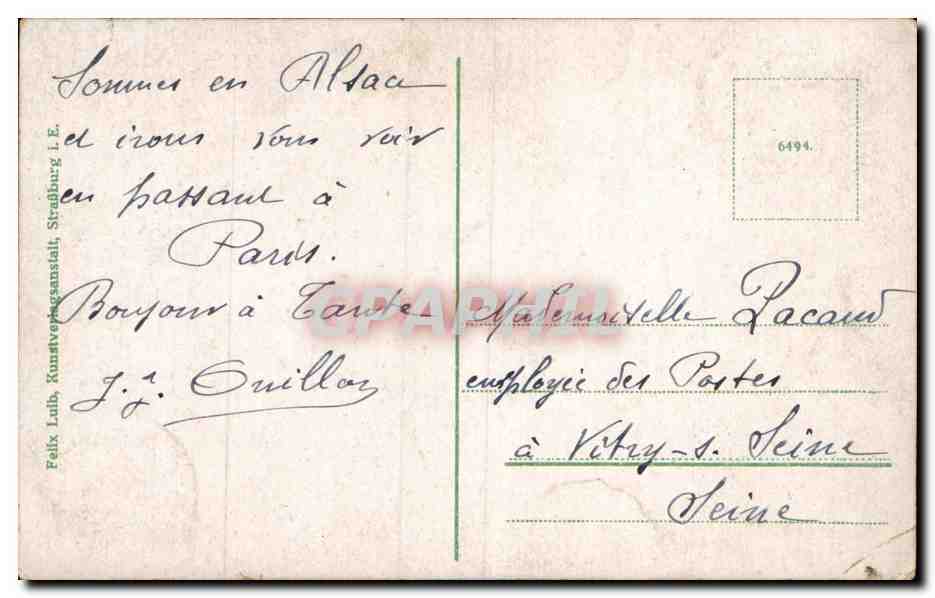 Sommes en Alsace
et irons vous voir
en passant à
Paris.
Bonjour à Tante
J. J.
Mademoiselle Lacaud
employée des Postes
à Vitry-s. Seine
Seine
6494.
Felix Luib, Kunstverlagsanstalt, Straßburg i. E.
CPARHIL